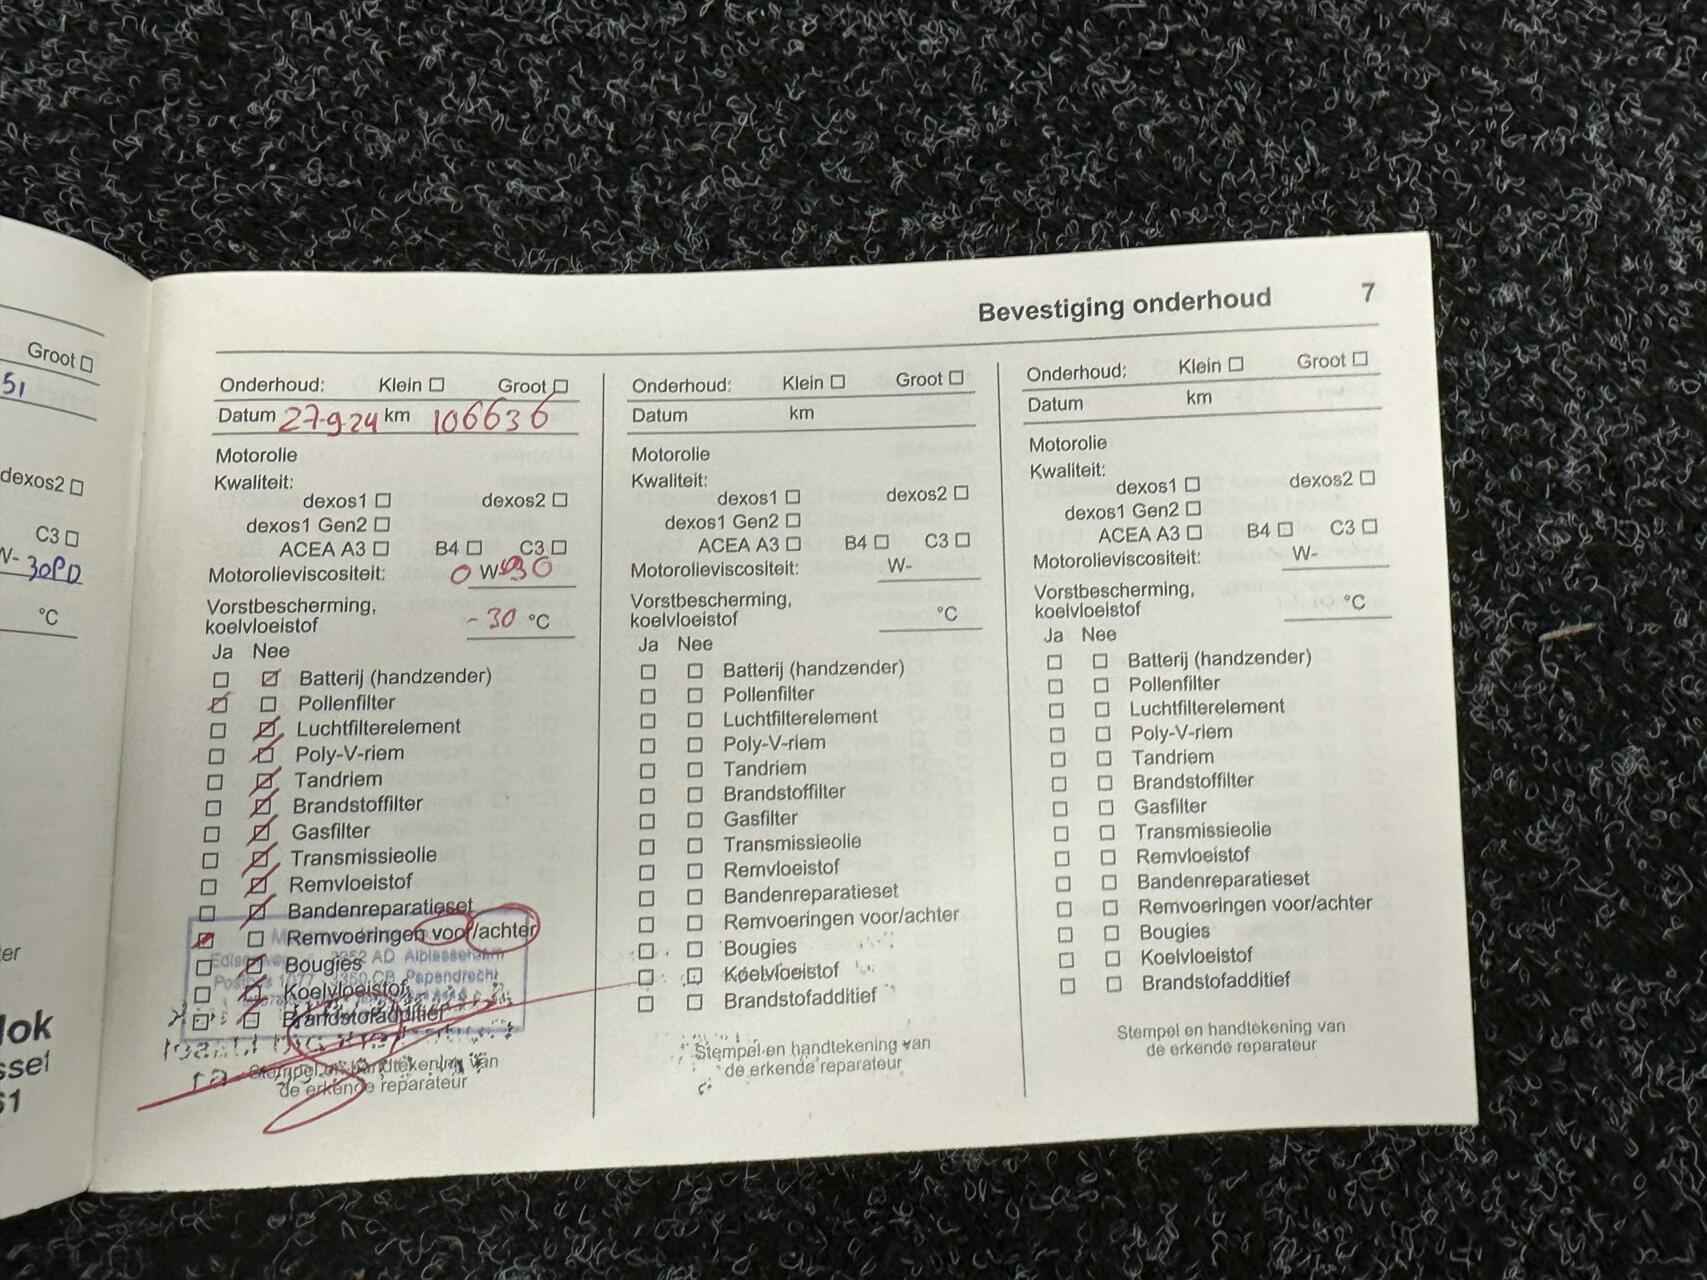 Groot
51
dexos2
C3
W- 30PD
°C
lok
ssel
61
Bevestiging onderhoud 7
Onderhoud: Klein Groot
Datum 27-9-24 km 106636
Motorolie
Kwaliteit:
dexos1 dexos2
dexos1 Gen2
ACEA A3 B4 C3
Motorolieviscositeit: 0 W-30
Vorstbescherming,
koelvloeistof -30 °C
Ja Nee
Batterij (handzender)
Pollenfilter
Luchtfilterelement
Poly-V-riem
Tandriem
Brandstoffilter
Gasfilter
Transmissieolie
Remvloeistof
Bandenreparatieset
Remvoeringen voor/achter
Bougies
AD Alblasserdam
Koelvloeistof
Papendrecht
Brandstofadditief
Stempel en handtekening van
de erkende reparateur
Onderhoud: Klein Groot
Datum km
Motorolie
Kwaliteit:
dexos1 dexos2
dexos1 Gen2
ACEA A3 B4 C3
Motorolieviscositeit: W-
Vorstbescherming,
koelvloeistof °C
Ja Nee
Batterij (handzender)
Pollenfilter
Luchtfilterelement
Poly-V-riem
Tandriem
Brandstoffilter
Gasfilter
Transmissieolie
Remvloeistof
Bandenreparatieset
Remvoeringen voor/achter
Bougies
Koelvloeistof
Brandstofadditief
Stempel en handtekening van
de erkende reparateur
Onderhoud: Klein Groot
Datum km
Motorolie
Kwaliteit:
dexos1 dexos2
dexos1 Gen2
ACEA A3 B4 C3
Motorolieviscositeit: W-
Vorstbescherming,
koelvloeistof °C
Ja Nee
Batterij (handzender)
Pollenfilter
Luchtfilterelement
Poly-V-riem
Tandriem
Brandstoffilter
Gasfilter
Transmissieolie
Remvloeistof
Bandenreparatieset
Remvoeringen voor/achter
Bougies
Koelvloeistof
Brandstofadditief
Stempel en handtekening van
de erkende reparateur